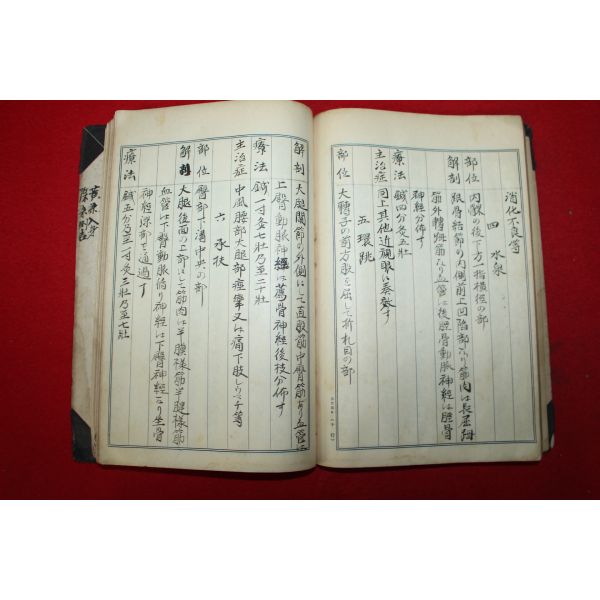 消化不良等
四 水泉
部位 内踝の後下方一指横径の部
解剖 跟骨結節の内側前上凹陥部なり筋肉は長屈拇
筋外転拇筋なり血管は後脛骨動脈神経は脛骨
神経分佈す
療法 鍼四分灸五壯
主治症 同上其他近視眼に奏効す
五 環跳
部位 大轉子の前方股を屈して折れ目の部
解剖 大腿関節の外側にして直股筋中臀筋あり血管は
上臀動脈神經は薦骨神経後枝分佈す
療法 鍼一寸灸七壯乃至二十壯
主治症 中風腰部大腿部痙攣又は痛下肢リウマチ等
六 承扶
部位 臀部下溝中央の部
解剖 大腿後面の上部にして筋肉は半膜様筋半腱様筋
血管は下臀動脈循り神経は下臀神経なり坐骨
神経深部を通過す
療法 鍼五分乃至一寸灸三壯乃至七壯